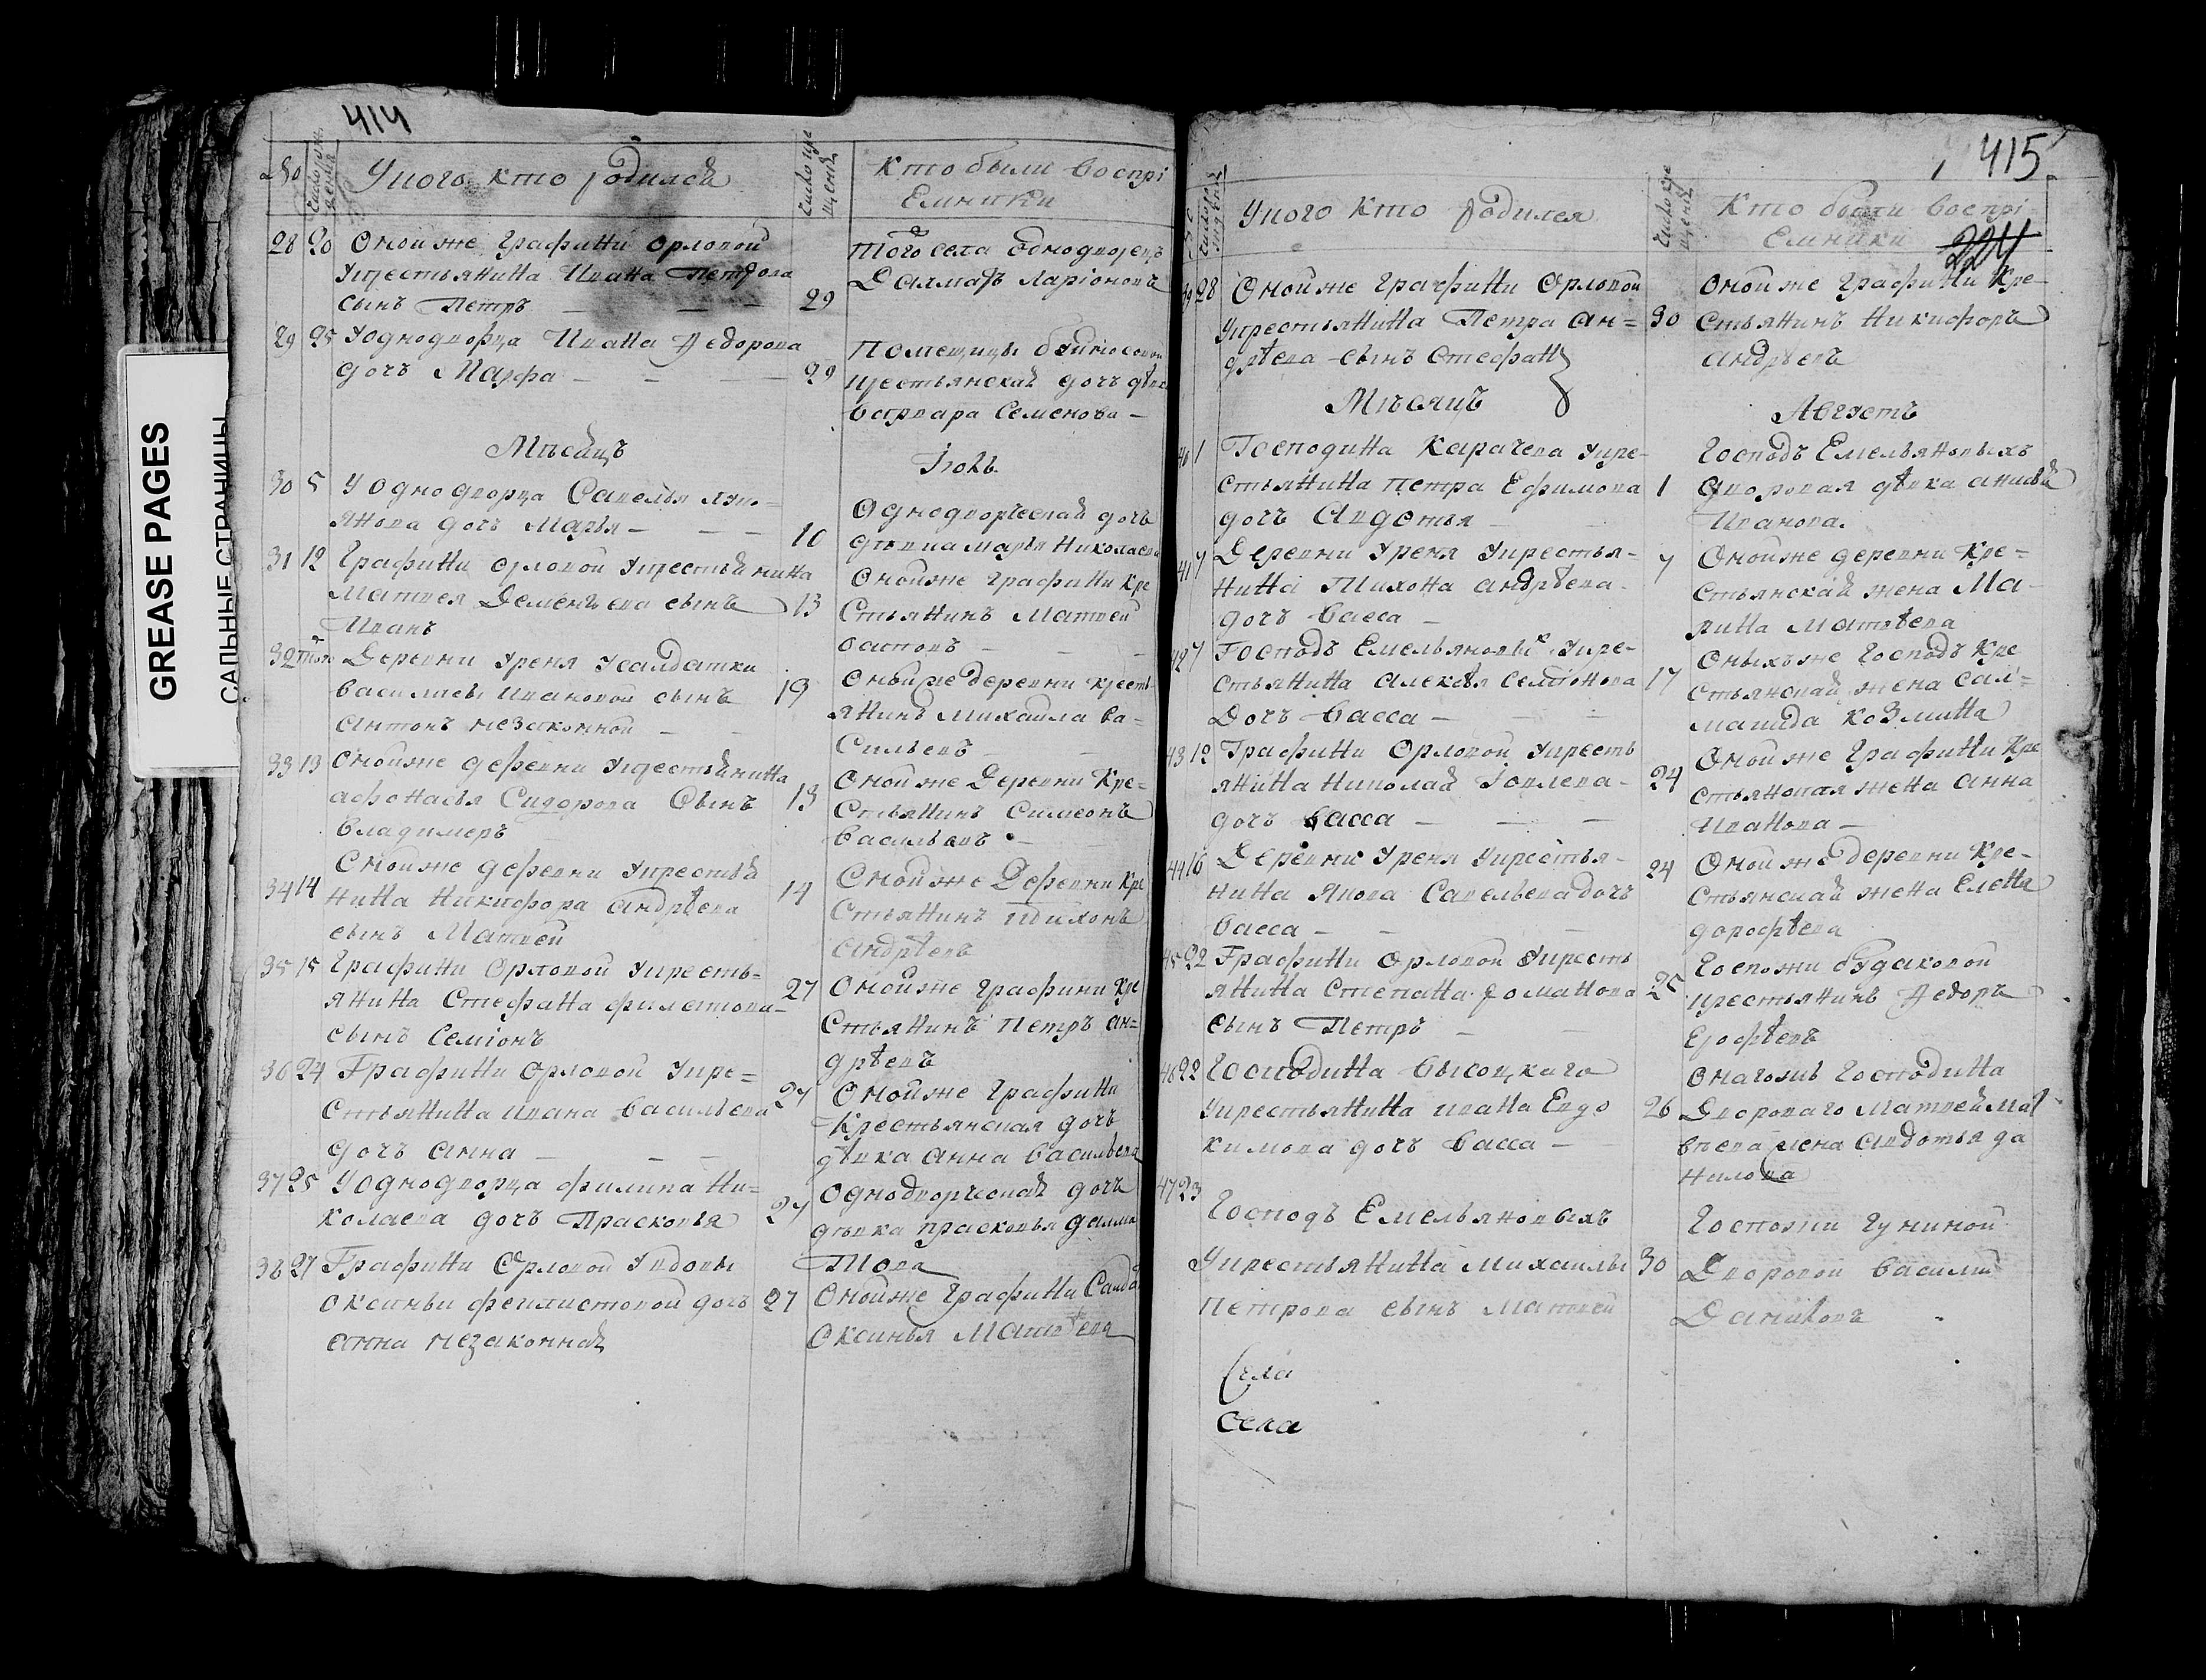 GREASE PAGES
САЛЬНЫЕ СТРАНИЦЫ
414
№
Число рож
дения
У кого кто родился
Число кре
щенія
Кто были воспрі
емники
28 20 Оной же графини Орловой
укрестьянина Ивана Петрова
сынъ Петръ — — —
29
Того села однодворецъ
Ларіоновъ
29 25 У однодворца Ивана Федорова
дочь Марфа — — —
29
Помещицы
крестьянская дочь девка
Варвара Семенова —
Мѣсяцъ
Іюль
30 5 У однодворца Савелья Лукь=
янова дочь Марья — — —
10
Однодворческая дочь
девка Марья Николаева
31 12 Графини Орловой укрестьянина
Матвея Дементьева сынъ
Иванъ
13
Оной же графини кре
стьянинъ Матвей
Осиповъ — —
32 Деревни Уреня усалдатки
Василисы Ивановой сынъ
Антонъ незаконной — —
19
Оной же деревни кресть
янинъ Михайла Ва=
сильевъ — —
33 13 Оной же деревни укрестьянина
Афонасья Сидорова сынъ
Владимеръ —
13
Оной же деревни кре=
стьянинъ Симеонъ
Васильевъ —
34 14 Оной же деревни укрестья
нина Никифора Андрѣева
сынъ Матвей
14
Оной же деревни кре
стьянинъ Тихонъ
Андрѣевъ
35 15 Графини Орловой укресть=
янина Стефана Филатова=
сынъ Семіонъ
27
Оной же графини кре
стьянинъ Петръ Ан=
дрѣевъ
36 24 Графини Орловой укре=
стьянина Ивана Васильева
дочь Анна — — —
27
Оной же графини
крестьянская дочь
дѣвка Анна Васильева
37 25 У однодворца Филипа Ни=
колаева дочь Прасковья
27
Однодворческая дочь
дѣвка Прасковья Далма
това
38 27 Графини Орловой увдовы
Оксиньи Феилистовой дочь
Анна незаконная
27
Оной же графини
Оксинья Матвѣева
415
224
У кого кто родился
Число кре
щенія
Кто были воспрі
емники
39 28 Оной же графини Орловой
укрестьянина Петра Ан=
дрѣева сынъ Стефанъ
30
Оной же графини кре-
стьянинъ Никифоръ
Андрѣевъ
Мѣсяцъ
Августъ
40 1 Господина Карачева укре-
стьянина Петра Ефимова
дочь Авдотья —
1
Господъ Емельяновыхъ
дворовая дѣвка Анисья
Иванова.
41 7 Деревни Уреня укрестья-
нина Тихона Андрѣева
дочь Васса —
7
Оной же деревни кре=
стьянская жена Ма-
рина Матвѣева
42 7 Господъ Емельяновых укре-
стьянина Алексѣя Семіонова
дочь Васса — — —
17
Оныхъ же господъ кре
стьянская жена Сал=
манида Козмина
43 12 Графини Орловой укресть
янина Николая Іовлева-
дочь Васса — — —
24
Оной же графини кре
стьянская жена Анна
Иванова —
44 16 Деревни Уреня укрестья-
нина Якова Савельева дочь
Васса — —
24
Оной же деревни кре-
стьянская жена Елена
Дорофѣева
45 22 Графини Орловой укресть
янина Степана Романова
сынъ Петръ —
25
Госпожи Будаковой
крестьянинъ Федоръ
Ерофѣевъ
46 22 Господина Высоцкаго
укрестьянина Ивана Евдо
кимова дочь Васса —
26
Онагожъ господина
двороваго Матвея Мат
вѣева жена Авдотья Да
нилова
47 23
Господъ Емельяновыхъ
укрестьянина Михаилы
Петрова сынъ Матвей
30
Госпожи
дворовой Василий
Села
Села